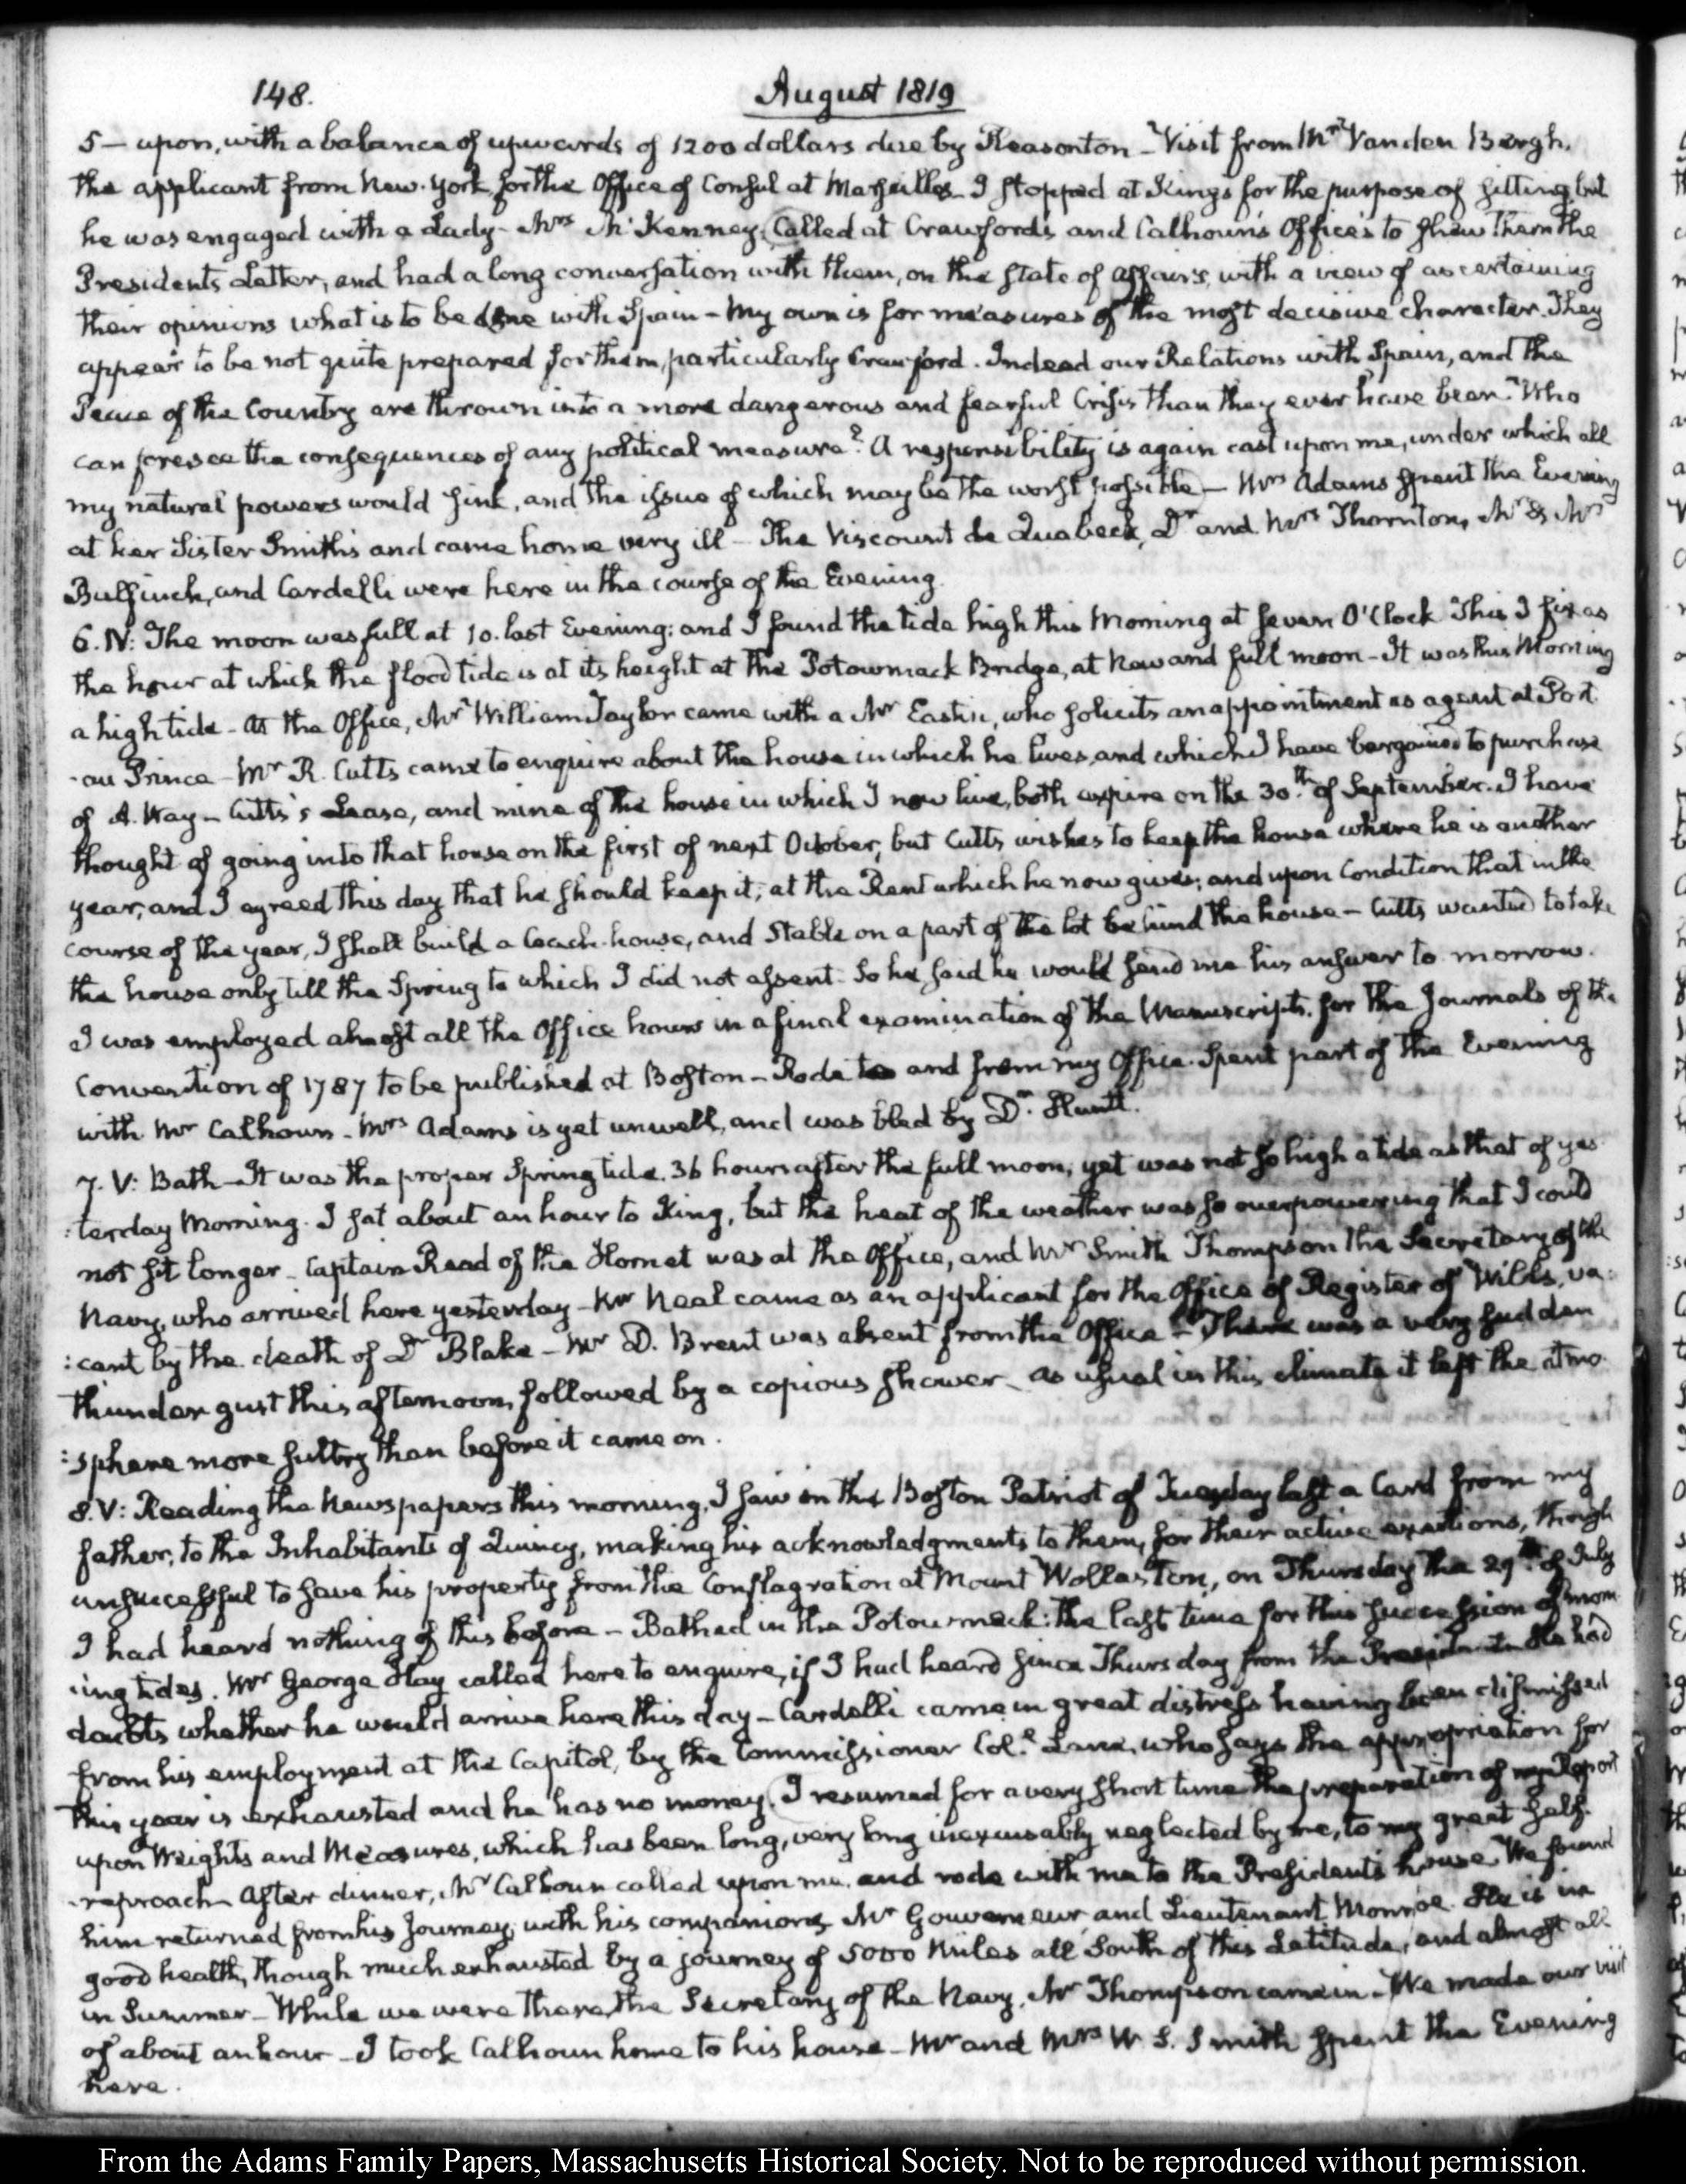 148. August 1819
5 — upon, with a balance of upwards of 1200 dollars due by Pleasonton — Visit from Mr. Vanden Bergh.
the applicant from New-York for the Office of Consul at Marseilles — I stopped at Kings for the purpose of sitting, but
he was engaged with a Lady — Mrs McKenney. Called at Crawford's and Calhoun's Offices to shew them the
Presidents Letter, and had a long conversation with them, on the state of affairs, with a view of ascertaining
their opinions what is to be done with Spain — My own is for measures of the most decisive character. They
appear to be not quite prepared for them, particularly Crawford. Indeed our Relations with Spain, and the
Peace of the Country are thrown into a more dangerous and fearful Crisis than they ever have been. Who
can foresee the consequences of any political measure? A responsibility is again cast upon me, under which all
my natural powers would sink, and the issue of which may be the worst possible — Mrs Adams spent the Evening
at her Sister Smith's and came home very ill — The Viscount de Quabeck, Dr and Mrs Thornton, Mr & Mrs
Bulfinch, and Cardelli were here in the course of the Evening.
6. IV: The moon was full at 10. last Evening: and I found the tide high this Morning at seven O'Clock This I fix as
the hour at which the flood tide is at its height at the Potowmack Bridge, at new and full moon — It was this Morning
a high tide — At the Office, Mr William Taylor came with a Mr Eastin, who solicits an appointment as agent at Port
-au Prince — Mr R. Cutts came to enquire about the house in which he lives, and which I have bargained to purchase
of A. Way — Cutts's Lease, and mine of the house in which I now live, both expire on the 30th. of September. I have
thought of going into that house on the first of next October, but Cutts wishes to keep the house where he is another
year; and I agreed this day that he should keep it, at the Rent which he now gives; and upon Condition that in the
course of the year, I shall build a Coach-house, and Stable on a part of the lot behind the house — Cutts wanted to take
the house only till the Spring to which I did not assent. So he said he would send me his answer to morrow.
I was employed almost all the Office hours in a final examination of the Manuscripts, for the Journals of the
Convention of 1787 to be published at Boston — Rode to and from my Office. Spent part of the Evening
with Mr Calhoun — Mrs Adams is yet unwell, and was bled by Dr. Huntt.
7. V: Bath — It was the proper Spring tide. 36 hours after the full moon, yet was not so high a tide as that of yes
:terday Morning. I sat about an hour to King, but the heat of the weather was so overpowering that I could
not sit longer — Captain Read of the Hornet was at the Office, and Mr Smith Thompson the Secretary of the
Navy, who arrived here yesterday — Mr Neal came as an applicant for the Office of Register of Wills, va:
:cant by the death of Dr Blake — Mr D. Brent was absent from the Office — There was a very sudden
thunder gust this afternoon, followed by a copious shower — as usual in this climate it left the atmo-
:sphere more sultry than before it came on.
8. V: Reading the Newspapers this morning, I saw in the Boston Patriot of Tuesday last a Card from my
father, to the Inhabitants of Quincy, making his acknowledgments to them, for their active exertions, though
unsuccessful to save his property from the Conflagration at Mount Wollaston, on Thursday the 29th. of July
I had heard nothing of this before — Bathed in the Potowmack: the last time for this succession of morn
:ing tides. Mr George Hay called here to enquire, if I had heard since Thursday from the President — He had
doubts whether he would arrive here this day — Cardelli came in great distress having been dismissed
from his employment at the Capitol, by the Commissioner Col.l Lane, who says the appropriation for
this year is exhausted and he has no money. I resumed for a very short time the preparation of my Report
upon Weights and Measures, which has been long, very long inexcusably neglected by me, to my great self-
-reproach — After dinner, Mr Calhoun called upon me, and rode with me to the Presidents house. We found
him returned from his Journey, with his companions Mr Gouverneur, and Lieutenant Monroe. He is in
good health, though much exhausted by a journey of 5000 Miles all South of this Latitude, and almost all
in Summer — While we were there, the Secretary of the Navy, Mr Thompson came in — We made our visit
of about an hour — I took Calhoun home to his house — Mr and Mrs W. S. Smith spent the Evening
here.
From the Adams Family Papers, Massachusetts Historical Society. Not to be reproduced without permission.